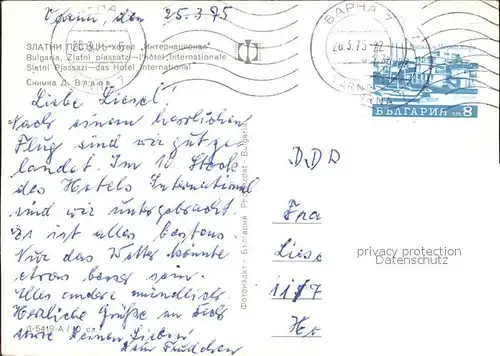 Varna, den 25.3.75
ВАРНА 7
26.3.75
ЗЛАТНИ ПЯСЪЦИ – хотел „Интернационал“
Bulgaria, Zlatni piassatzi – l'hôtel „Internationale
Slatni Pjassazi – das Hotel International
Снимка Д.
Liebe Liesel!
Nach einem herrlichen
Flug sind wir gut ge-
landet. Im 12. Stock
des Hotels International
sind wir untergebracht.
Es ist alles bestens
Nur das Wetter könnte
etwas besser sein.
Alles andere mündlich.
Herzliche Grüße an Dich
sowie Deinen Lieben
Dein Frudchen
Д-5419-А
Фотоиздат · България Photoizdat · Bulgaria
БЪЛГАРИЯ 8
DDR
Fra
Liese
privacy protection
Datenschutz